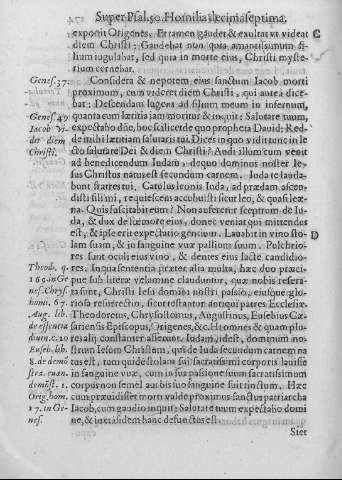 Super Psal. 50. Homilia decimaseptima.
exponit Origenes. Et tamen gaudet & exultat vt videat C
diem Christi: Gaudebat non quia amantissimum fi
lium iugulabat, sed quia in morte eius, Christi myste-
rium cernebat.
Genes. 37. Considera & nepotem eius sanctum Iacob morti
proximum, cum videret diem Christi, qui antea dice
bat: Descendam lugens ad filium meum in infernum,
Genes. 49. quanta cum lætitia iam moritur & inquit: Salutare tuum,
Iacob vi- expectabo dñe, hoc scilicet de quo propheta Dauid: Red-
det diem de mihi lætitiam salutaris tui. Dices in quo vidit tunc in le
Christi. cto salutare Dei & diem Christi? Audi illum cum venit
ad benedicendum Iudam, de quo dominus noster Ie-
sus Christus natus est secundum carnem. Iuda te lauda-
bunt fratres tui. Catulus leonis Iuda, ad prædam ascen-
disti fili mi, requiescens accubuisti sicut leo, & quasi leæ-
na. Quis suscitabit eum? Non auferetur sceptrum de Iu-
da, & dux de fœmore eius, donec veniat qui mittendus
est, & ipse erit expectatio gentium. Lauabit in vino sto D
lam suam, & in sanguine vuæ pallium suum. Pulchrio-
res sunt oculi eius vino, & dentes eius lacte candidio-
Theod. q. res. In qua sententia præter alia multa, hæc duo præci-
pue sub literæ velamine clauduntur, quæ nobis resera-
nes. Chrys. ta sunt, Christi Iesu domini nostri passio, eiusque glo-
homi. 67. riosa resurrectio, sicut testantur antiqui patres Ecclesiæ.
Aug. lib. Theodoretus, Chrysostomus, Augustinus, Eusebius Cæ
de essentia sariensis Episcopus, Origenes, &c. Homnes & quam plu-
c. 10 res alij constanter asserunt. Iudam, idest, dominum no-
Euseb. lib. strum Iesum Christum, qui de Iuda secundum carnem na
8. de demō tus est, non quidē stolam sui sacratissimi corporis lauisse
stra. euan. in sanguine vuæ, cum in sua passione suum sacratissimum
demōst. 1. corpus non semel aut bis suo sanguine sui tinctum. Hæc
Orig. hom. cum præuidisset morti valde proximus sanctus patriarcha
17. in Ge- Iacob, cum gaudio inquit: Salutare tuum expectabo domi
nes. ne, & in tali fidem hanc defunctus est.
Sict